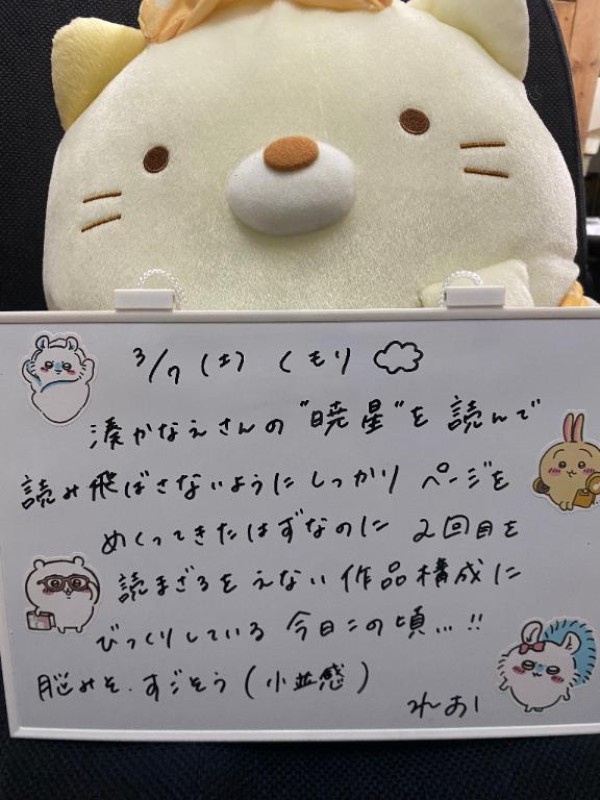 3/7(土) くもり
湊かなえさんの"暁星"を読んで
読み飛ばさないようにしっかりページを
めくってきたはずなのに2回目を
読まざるをえない作品構成に
びっくりしている今日この頃...!!
脳みそ、すごそう(小並感)